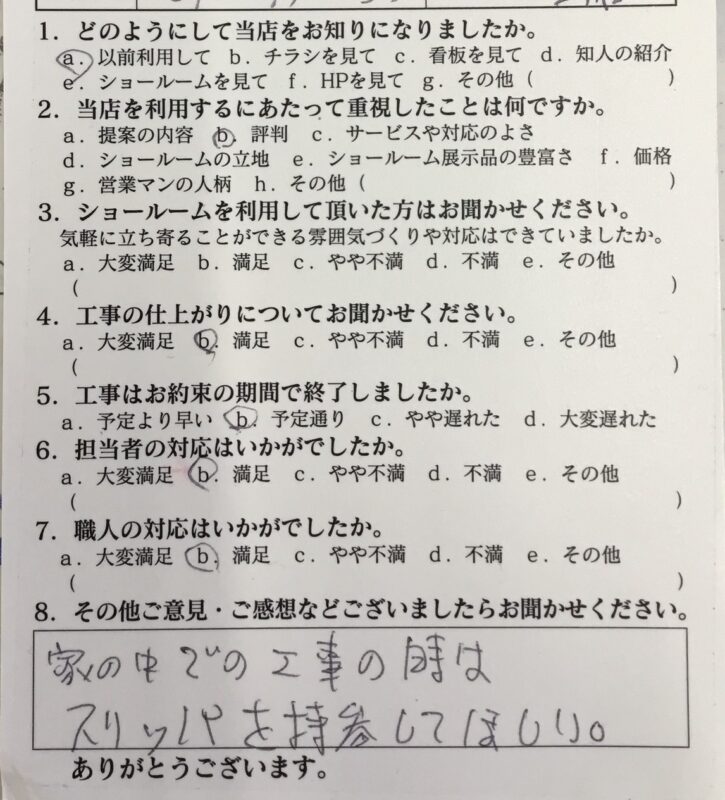 1．どのようにして当店をお知りになりましたか。
a．以前利用して b．チラシを見て c．看板を見て d．知人の紹介
e．ショールームを見て f．HPを見て g．その他（　　　　　　）
2．当店を利用するにあたって重視したことは何ですか。
a．提案の内容 b．評判 c．サービスや対応のよさ
d．ショールームの立地 e．ショールーム展示品の豊富さ f．価格
g．営業マンの人柄 h．その他（　　　　　　）
3．ショールームを利用して頂いた方はお聞かせください。
気軽に立ち寄ることができる雰囲気づくりや対応はできていましたか。
a．大変満足 b．満足 c．やや不満 d．不満 e．その他
（　　　　　　）
4．工事の仕上がりについてお聞かせください。
a．大変満足 b．満足 c．やや不満 d．不満 e．その他
（　　　　　　）
5．工事はお約束の期間で終了しましたか。
a．予定より早い b．予定通り c．やや遅れた d．大変遅れた
6．担当者の対応はいかがでしたか。
a．大変満足 b．満足 c．やや不満 d．不満 e．その他
（　　　　　　）
7．職人の対応はいかがでしたか。
a．大変満足 b．満足 c．やや不満 d．不満 e．その他
（　　　　　　）
8．その他ご意見・ご感想などございましたらお聞かせください。
家の中での工事の時は
スリッパを持参してほしい。
ありがとうございます。